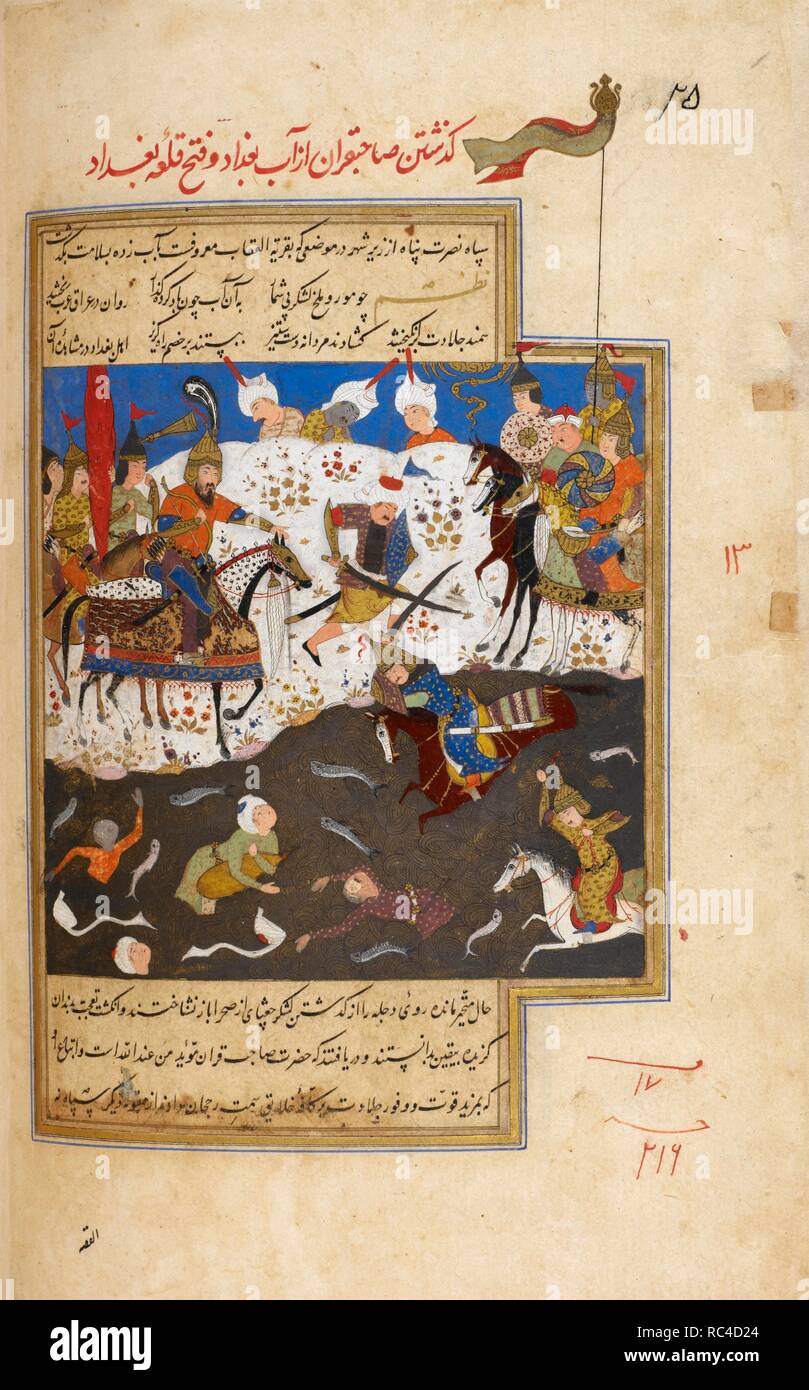 ۲۵
گذشتن صاحبقران از آب بغداد و فتح قلعه بغداد
سپاه نصرت پناه از زیر شهر در موضعی که بقریة العقاب معروفست بآب زده بسلامت بگذشت
نظم
چو مور و ملخ لشکر بی شمار به آن آب چون باد کرده گذار
روان در عراق عرب
سمند جلادت برانگیختند
گشادند مردانه دست ستیز ببستند بر خصم راه گریز
اهل بغداد در مشاهده آن
۱۳
حال متحیر مانده روی دجله را از گذشتن لشکر جغتای از صحرا باز نشناختند و انگشت تعجب بدندان
گزیده بیقین بدانستند و دریافتند که حضرت صاحب قران مؤید من عند الله است و اتباع او
که بمزید قوت و وفور جلادت بر کافه خلایق سمت رجحان دارند از مقوله دیگر سپاه نه
۱۷
۲۱۶
القصه
alamy
alamy
Image ID: RC4D24
www.alamy.com